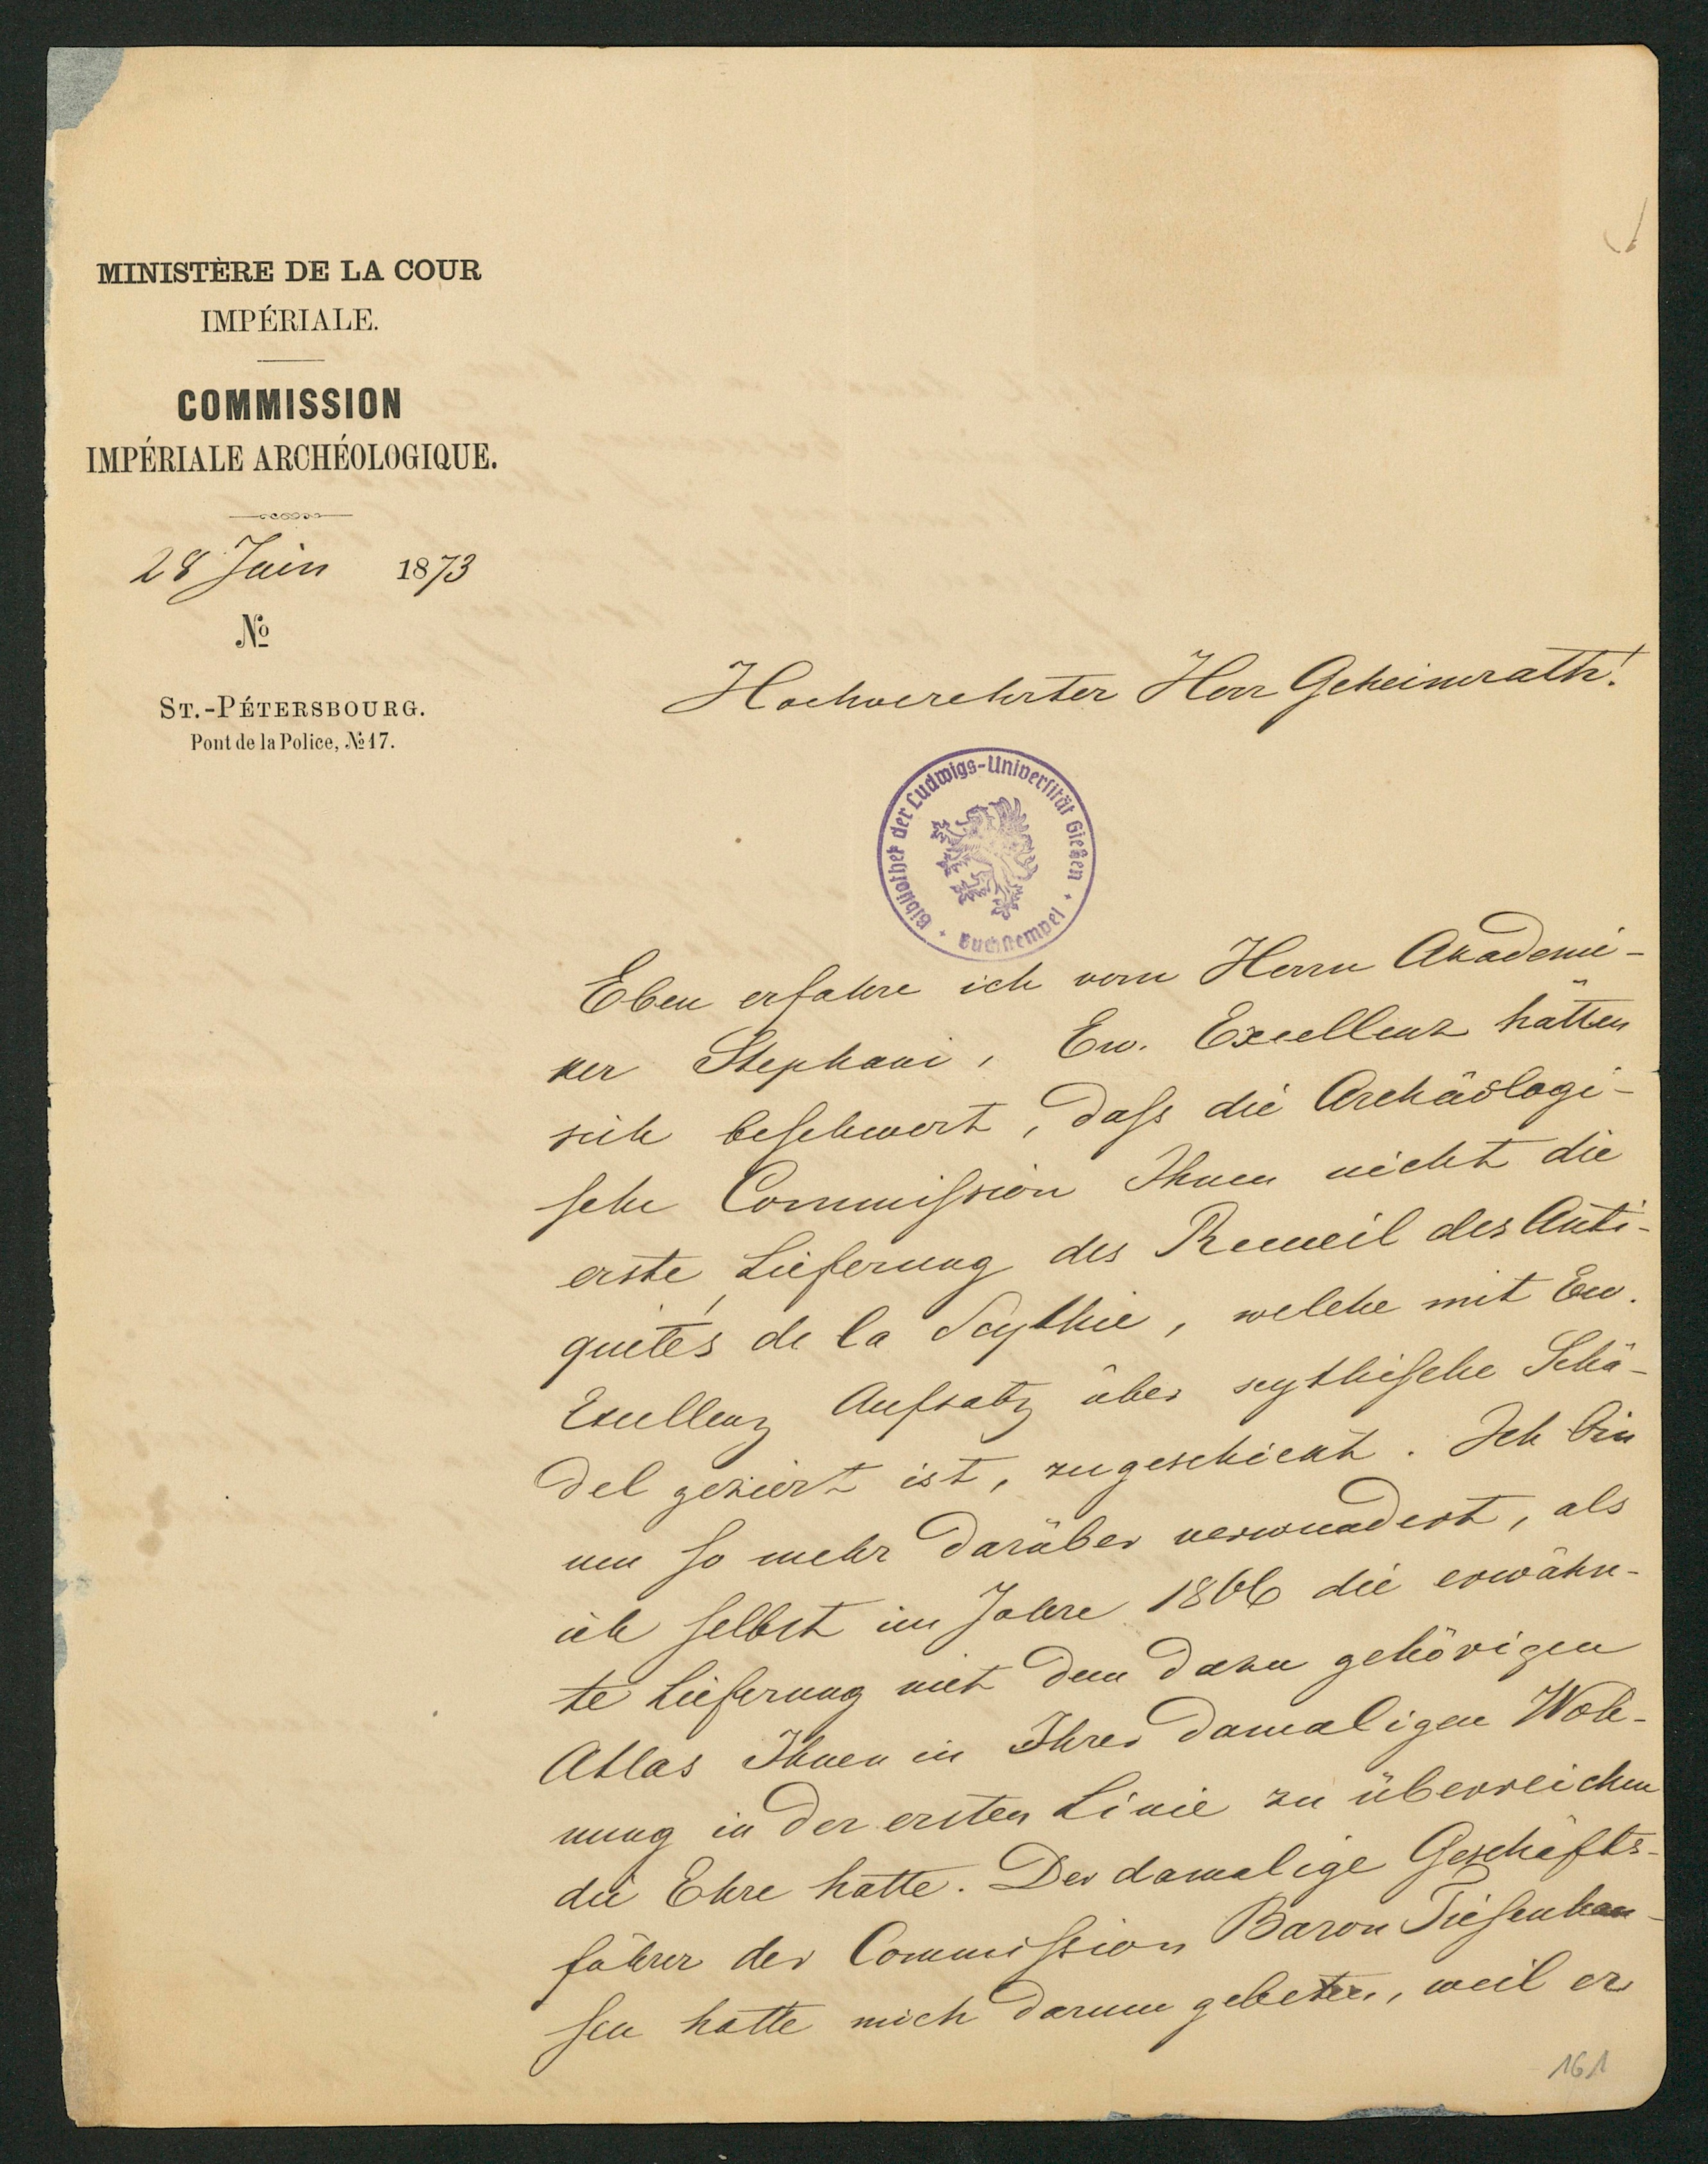 MINISTÈRE DE LA COUR
IMPÉRIALE.
COMMISSION
IMPÉRIALE ARCHÉOLOGIQUE.
28 Juin 1873
№
ST.-PÉTERSBOURG.
Pont de la Police, № 17.
Hochverehrter Herr Geheimrath!
Bibliothek der Ludwigs-Universität Gießen
Buchstempel
Eben erfahre ich vom Herrn Akademi-
ker Stephani, Ew. Excellenz hätten
sich beschwert, daſs die Archäologi-
sche Commiſsion Ihnen nicht die
erste Lieferung des Recueil des Anti-
quités de la Scythie, welche mit Ew.
Excellenz Aufsatz über scythische Schä-
del geziert ist, zugeschickt. Ich bin
um so mehr darüber verwundert, als
ich selbst im Jahre 1866 die erwähn-
te Lieferung mit dem dazu gehörigen
Atlas Ihnen in Ihrer damaligen Woh-
nung in der ersten Linie zu überreichen
die Ehre hatte. Der damalige Geschäfts-
führer der Commiſsion Baron Tiesenhau-
sen hatte mich darum gebeten, weil er
161